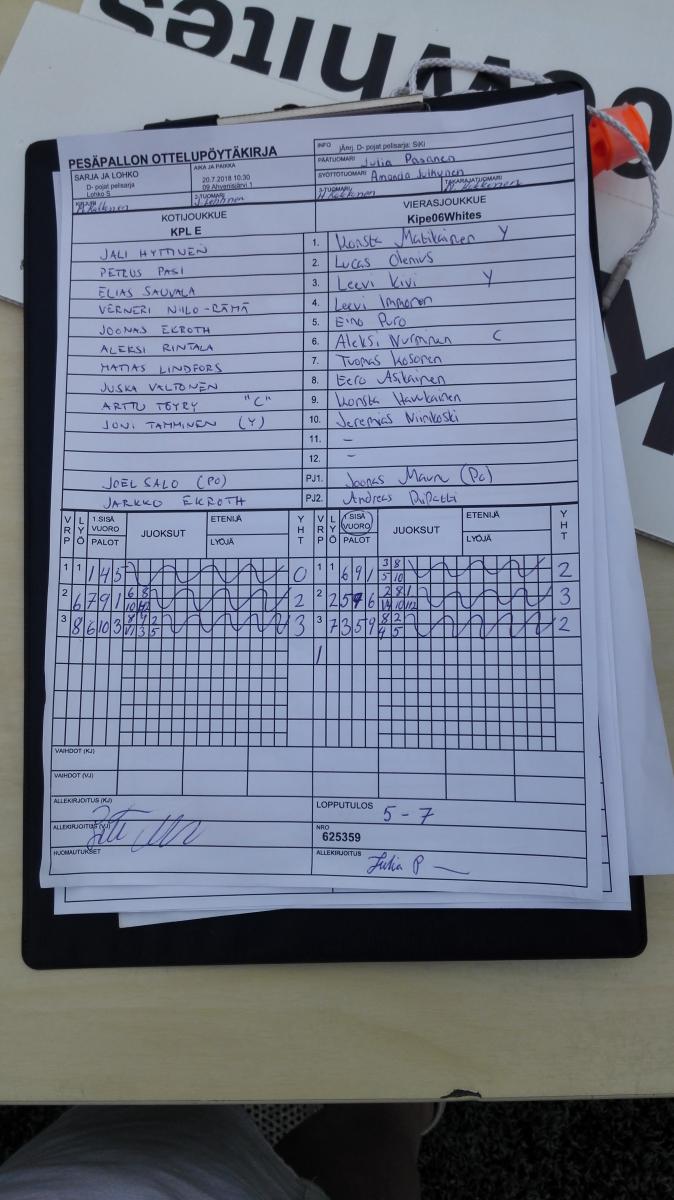 oewhites
PESÄPALLON OTTELUPÖYTÄKIRJA
SARJA JA LOHKO
D- pojat pelisarja
Lohko S
AIKA JA PAIKKA
20.7.2018 10:30
09 Ahvenisjärvi 1
INFO jÄnj. D- pojat pelisarja: SiKi
PÄÄTUOMARI Julia Pasanen
SYÖTTÖTUOMARI Amanda Juthunen
KIRJURI
2-TUOMARI
3-TUOMARI
TAKARAJATUOMARI
KOTIJOUKKUE
KPL E
VIERASJOUKKUE
Kipe06Whites
JALI HYTTINEN 1. Konsta Matikainen Y
PETRUS PASI 2. Lucas Olenius
ELIAS SAUVALA 3. Leevi Kivi Y
VERNERI NIILO-RÄMÄ 4. Leevi Immonen
JOONAS EKROTH 5. Eino Puro
ALEKSI RINTALA 6. Aleksi Nurminen C
MATIAS LINDFORS 7. Tuomas Kosonen
JUSKA VALTONEN 8. Eero Asikainen
ARTTU TÖYRY "C" 9. Konsta Haukkainen
JONI TAMMINEN (Y) 10. Jeremias Niinikoski
11. –
12. –
JOEL SALO (PO) PJ1. Joonas (Pc)
JARKKO EKROTH PJ2. Andreas
VRP LYÖ 1.SISÄ VUORO PALOT JUOKSUT ETENIJÄ LYÖJÄ YHT VRP LYÖ 1.SISÄ VUORO PALOT JUOKSUT ETENIJÄ LYÖJÄ YHT
1 1 1 4 5 0 1 1 6 9 1 3 8 5 10 2
2 6 7 9 1 6 8 2 2 2 5 6 2 8 3
3 8 6 10 3 3 3 7 3 5 9 8 2 4 5 2
VAIHDOT (KJ)
VAIHDOT (VJ)
ALLEKIRJOITUS (KJ)
LOPPUTULOS 5-7
ALLEKIRJOITUS (VJ)
NRO
625359
HUOMAUTUKSET
ALLEKIRJOITUS Julia P